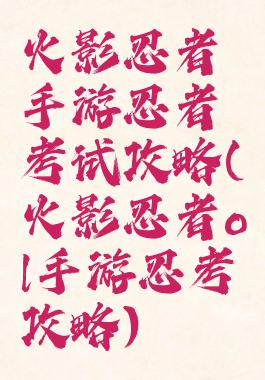 火影忍者
手游忍者
考试攻略(
火影忍者。
|手游忍考
攻略)